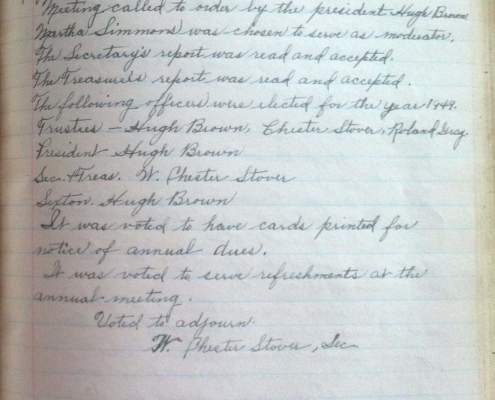 Meeting called to order by the president Hugh Brown.
Martha Simmons was chosen to serve as moderator.
The Secretary's report was read and accepted.
The Treasurer's report was read and accepted.
The following officers were elected for the year 1949.
Trustees – Hugh Brown, Chester Stover, Roland Gray
President Hugh Brown
Sec. & Treas. W. Chester Stover
Sexton. Hugh Brown
It was voted to have cards printed for
notice of annual dues.
It was voted to serve refreshments at the
annual meeting.
Voted to adjourn.
W. Chester Stover, Sec